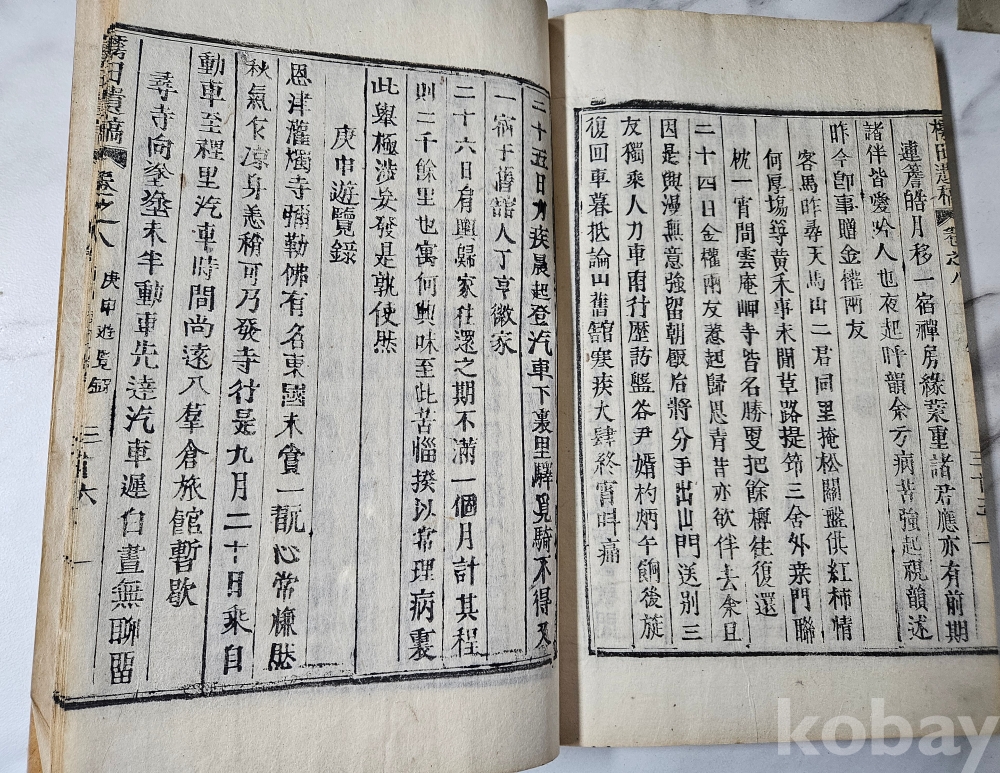 連簷皓月移一宿禪房緣業重諸君應亦有前期
諸伴皆愛吟人也夜起呼韻余方病苦強起視韻述
昨今卽事贈金權兩友
客馬昨尋天馬山二君同里掩松關盤供紅柿情
何厚塲等黃禾事未閒草路提筇三舍外桒門聯
枕一宵間雲庵岬寺皆名勝更把餘樽往復還
二十四日金權兩友惹起歸思青昔亦欲伴去余且
因是興漫無意強留朝飯后將分手出山門送別三
友獨乘人力車南行歷訪盤谷尹婿杓炳午餉後旋
復回車暮抵論山舊舘寒疾大肆終宵呌痛
二十五日力疾晨起登汽車下裏里驛覓騎不得又
一宿于舊舘人丁亨徵家
二十六日有輿歸家往還之期不滿一個月計其程
則二千餘里也寓何興味至此苦惱揆以常理病裏
此擧極涉妄發是孰使然
庚申遊覽錄
恩津灌燭寺彌勒佛有名東國未賞一翫心常慊然
秋氣乍凉身恙稍可乃發寺行是九月二十日乘自
動車至裡里汽車時間尚遠入羣倉旅館暫歇
尋寺向塗塗未半動車先達汽車遲白晝無聊留
田遺稿 卷之八 庚申遊覽錄 三十六
kobay